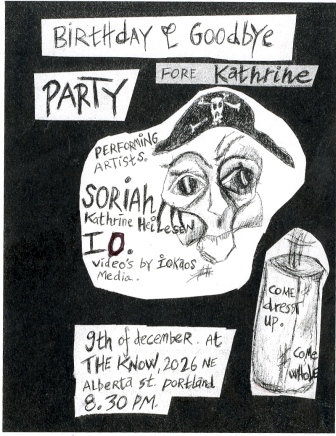 BIRTHDAY & GOODBYE
PARTY
FORE Kathrine
PERFORMING
ARTISTS.
SORIAH
Kathrine Heilesen
I O.
video's by IOKAOS
Media.
COME
dress
up.
COME
WHOLE
9th of december. At
THE KNOW, 2026 NE
Alberta st. portland
8.30 PM.